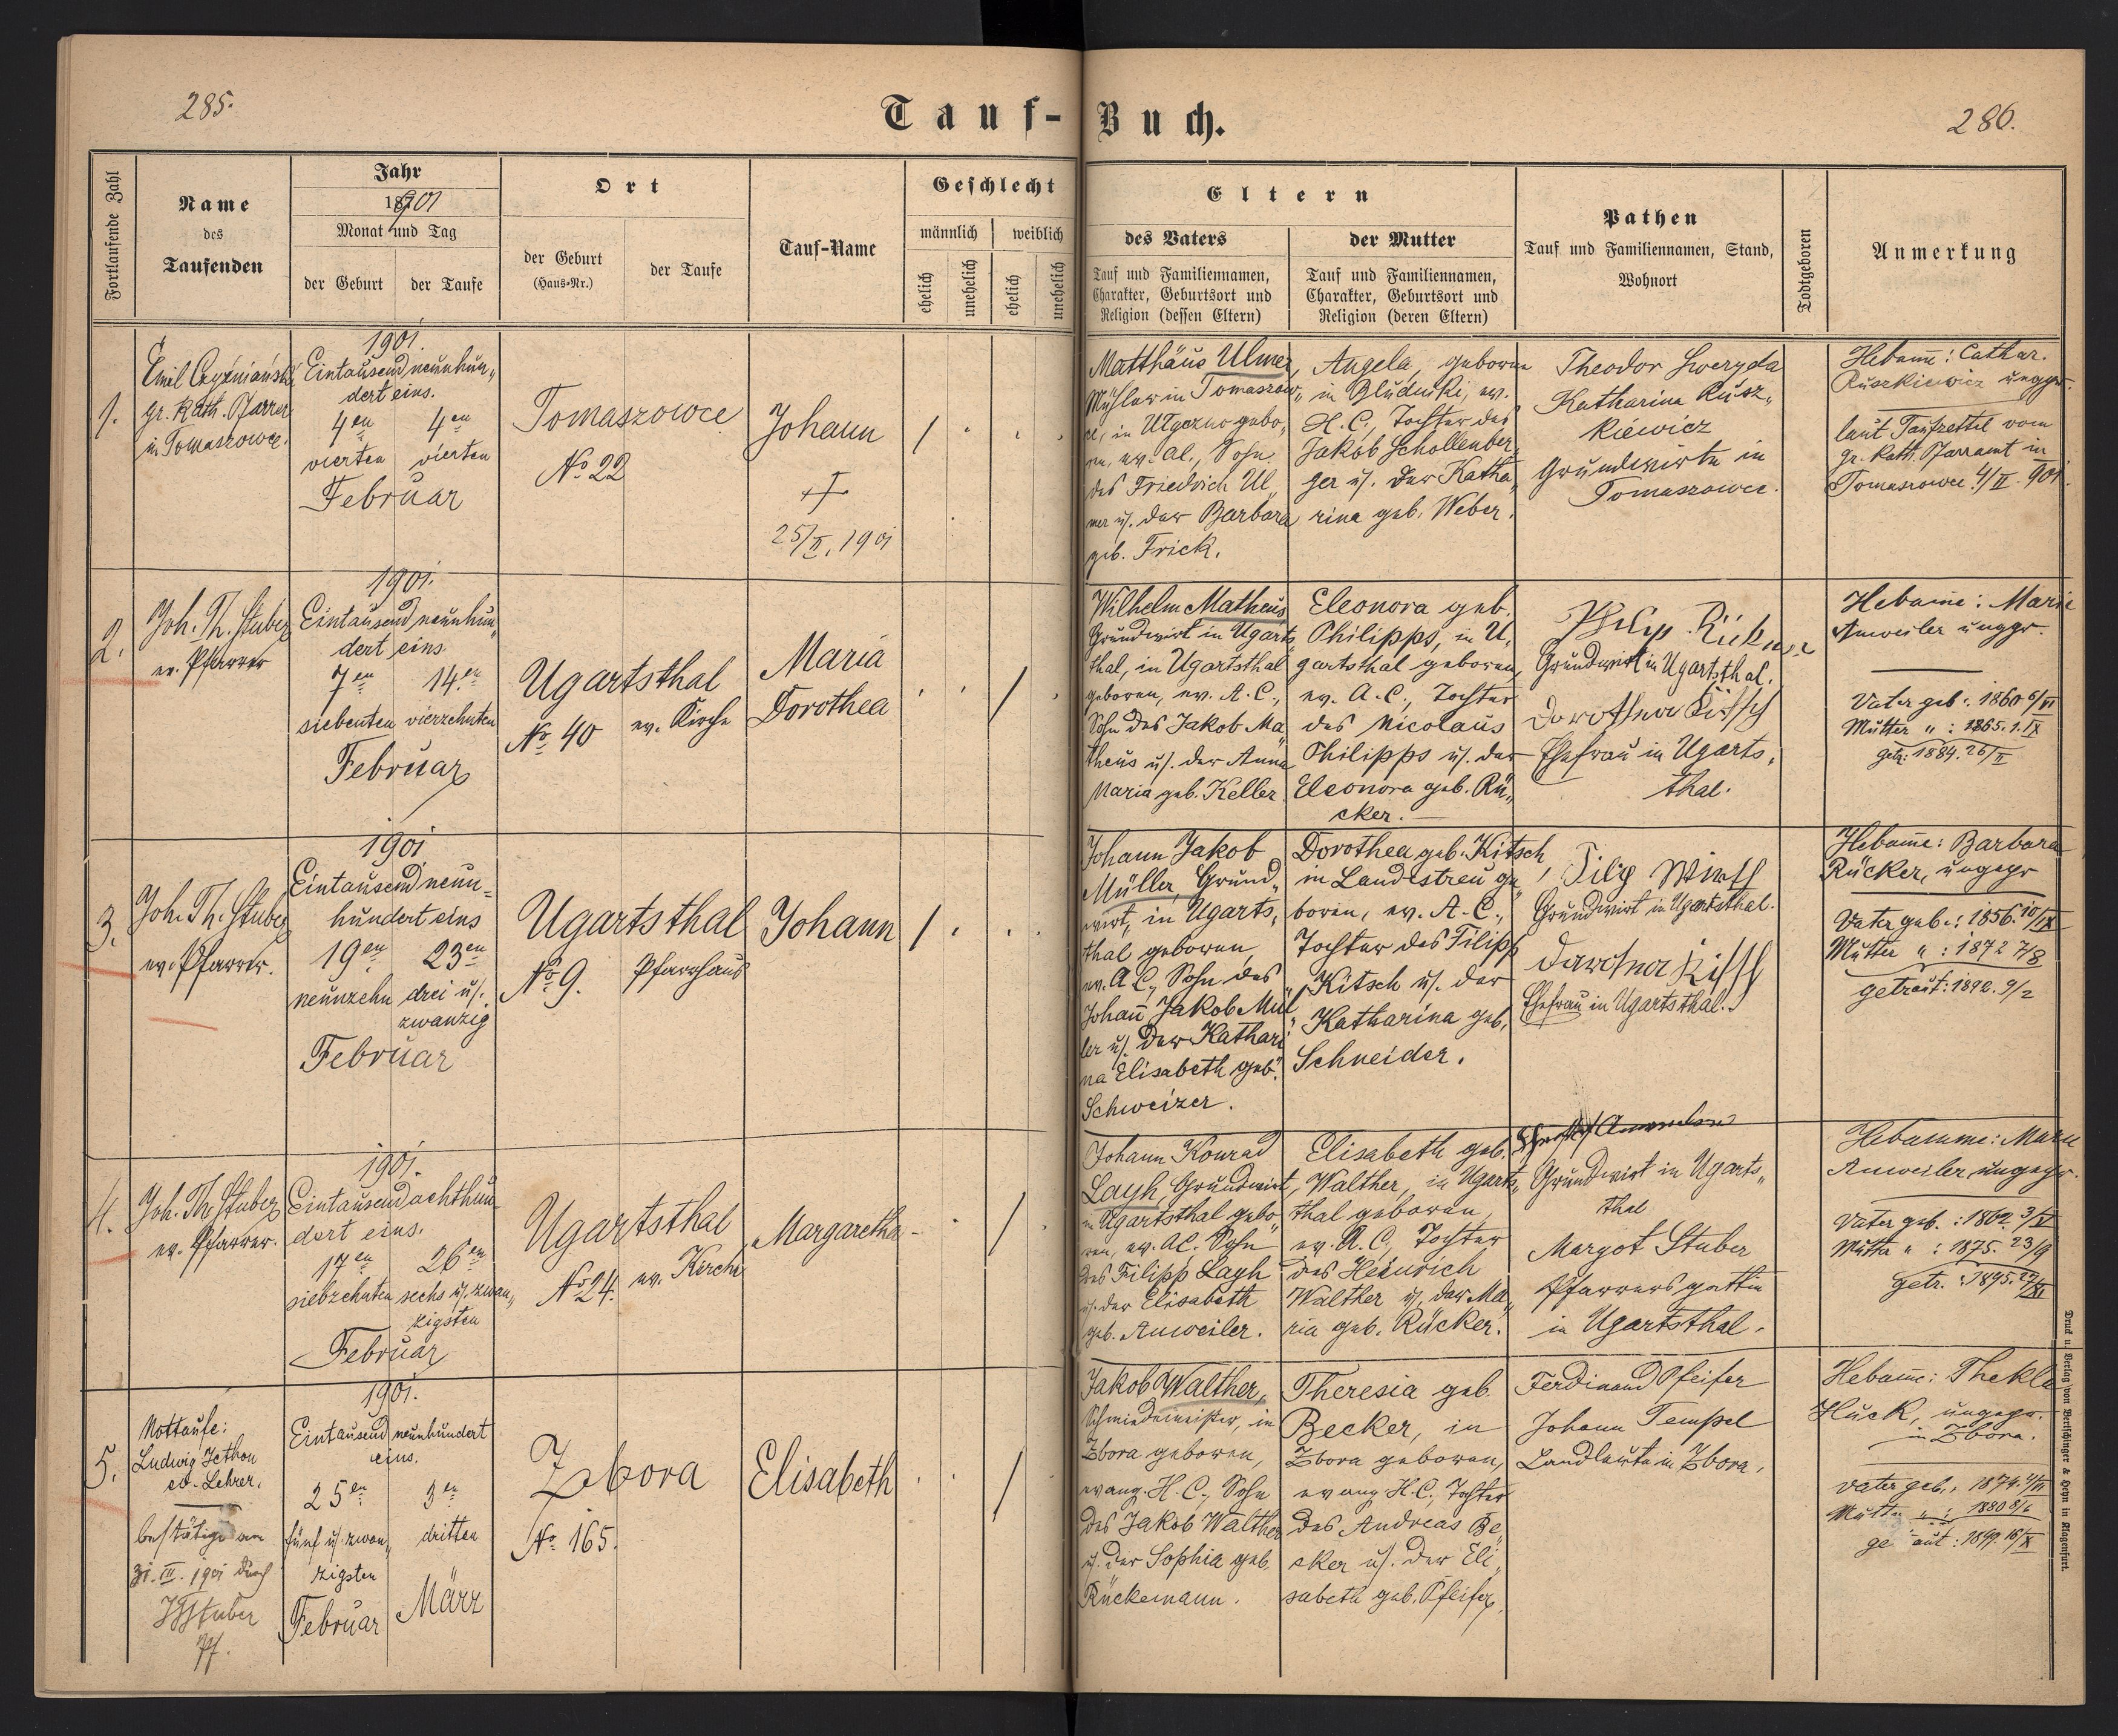 285.
Tauf-Buch.
286.
Fortlaufende Zahl
Name
des
Taufenden
Jahr
18 901
Monat und Tag
der Geburt
der Taufe
Ort
der Geburt
(Haus-Nr.)
der Taufe
Tauf-Name
Geschlecht
männlich
weiblich
ehelich
unehelich
ehelich
unehelich
Eltern
des Vaters
Tauf und Familiennamen,
Charakter, Geburtsort und
Religion (dessen Eltern)
der Mutter
Tauf und Familiennamen,
Charakter, Geburtsort und
Religion (deren Eltern)
Pathen
Tauf und Familiennamen, Stand,
Wohnort
Todtgeboren
Anmerkung
1.
Emil
gr. kath. Pfarrer
in Tomaszowce.
1901.
Eintausend neunhun„
dert eins.
4en
4en
vierten
vierten
Februar
Tomaszowce
No 22
Johann
25/II. 1901
Matthäus Ulmer,
in Tomaszow„
ce, in Ugerzno gebo„
ren, ev. al., Sohn
des Friedrich Ul„
mer u. der Barbara
geb. Frick.
Angela, geboren
in Bludniki, ev.
H.C., Tochter des
Jakob Schollenber„
ger u. der Katha„
rina geb. Weber.
Theodor Sweryda
Katharina Rusz„
kiewicz
Grundwirte in
Tomaszowce.
Hebame: Cathar.
Ruszkiewicz ungepr.
laut Taufzettel vom
gr. kath. Pfarramt in
Tomaszowce 4/II. 901.
2.
Joh. Th. Stuber
ev. Pfarrer
1901.
Eintausend neunhun„
dert eins.
7en
14.en
siebenten
vierzehnten
Februar
Ugartsthal
No 40
ev. Kirche
Maria
Dorothea
Wilhelm Matheus
Grundwirt in Ugarts„
thal, in Ugartsthal
geboren, ev. A.C.,
Sohn des Jakob Ma„
theus u. der Anna
Maria geb. Keller.
Eleonora geb.
Philipps, in U„
gartsthal geboren,
ev. A.C., Tochter
des Nicolaus
Philipps u. der
Eleonora geb. Rü„
cker.
Grundwirt in Ugartsthal.
Dorothea Kitsch
Ehefrau in Ugarts„
thal.
Hebame: Marie
Anweiler ungepr.
Vater geb.: 1860 6/VI
Mutter „ : 1865. 1. IX
getr: 1884. 26/II
3.
Joh. Th. Stuber
ev. Pfarrer.
1901
Eintausend neun-
hundert eins
19en
23en
neunzehn
drei u.
zwanzig
Februar
Ugartsthal
No 9.
Pfarrhaus
Johann
Johann Jakob
Müller, Grund„
wirt, in Ugarts„
thal geboren,
ev. A.C., Sohn des
Johan Jakob Mül„
ler u. der Kathari„
na Elisabeth geb.
Schweizer.
Dorothea geb. Kitsch
in Landestreu ge„
boren, ev. A.C.,
Tochter des Filipp
Kitsch u. der
Katharina geb.
Schneider.
Grundwirt in Ugartsthal.
Ehefrau in Ugartsthal.
Hebame: Barbara
Rücker, ungepr
Vater geb.: 1856. 10/IX
Mutter „ : 1872 7/8
getraut: 1892. 9/2
4.
Joh. Th. Stuber
ev. Pfarrer.
1901.
Eintausend achthun„
dert eins.
17en
26en
siebzehnten
sechs u. zwan„
zigsten
Februar
Ugartsthal
No 24.
ev. Kirche
Margaretha
Johann Konrad
Layh, Grundwirt,
in Ugartsthal gebo„
ren, ev. AC. Sohn
des Filipp Layh
u. der Elisabeth
geb. Anweiler.
Elisabeth geb.
Walther, in Ugarts„
thal geboren,
ev. A.C., Tochter
des Heinrich
Walther u. der Ma„
ria geb. Rücker.
Grundwirt in Ugarts„
thal
Margot Stuber
Pfarrersgattin
in Ugartsthal.
Hebamme: Marie
Anweiler ungepr.
Vater geb.: 1869. 3/XI
Mutter „ : 1875. 23/9
getr.: 1895. 29/XI
5.
Nottaufe:
Ludwig Jethon
ev. Lehrer.
bestätigt am
31. III. 1901 durch
JThStuber
Pf.
1901.
Eintausend neunhundert
eins.
25en
3en
fünf u. zwan„
zigsten
dritten
Februar
März
Zbora
No. 165.
Elisabeth
Jakob Walther,
Schmiedemeister, in
Zbora geboren,
evang. H.C., Sohn
des Jakob Walther
u. der Sophia geb.
Rückemann.
Theresia geb.
Becker, in
Zbora geboren,
evang H.C., Tochter
des Andreas Be„
cker u. der Eli„
sabeth geb. Pfeifer.
Ferdinand Pfeifer
Johann Tempel
Landleute in Zbora.
Hebame: Thekla
Huck, ungepr.
in Zbora.
Vater geb.: 1874.
Mutter „ : 1880
ge aut: 1899. 16/X
Druck u. Verlag von Bertschinger & Heyn in Klagenfurt.